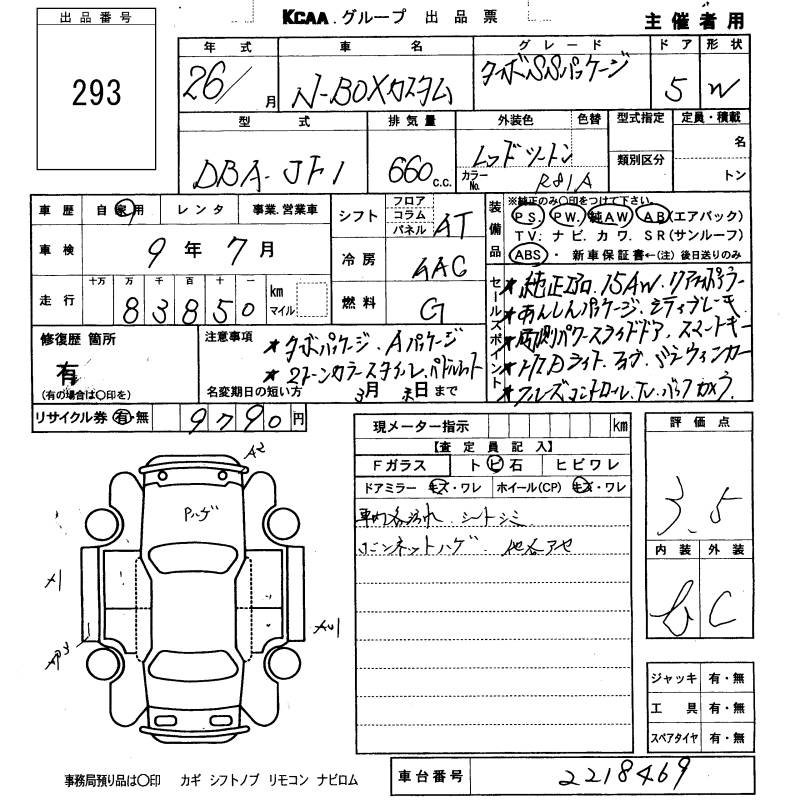 出品番号
293
KCAA.グループ 出品票
主催者用
年式 車名 グレード ドア 形状
26/月 N-BOXカスタム ターボSSパッケージ 5 W
型式 排気量 外装色 色替 型式指定 定員・積載
類別区分
名
トン
DBA-JF1 660c.c. レッドツートン
カラーNo. R81A
車歴 自家用 レンタ 事業.営業車
車検 9年7月
走行 十万 万 千 百 十 一 km マイル
83850
シフト フロア コラム パネル AT
冷房 AAC
燃料 G
装備品
※純正のみ〇印をつけて下さい。
PS. PW. 純AW. AB.(エアバック)
TV: ナビ. カワ. SR(サンルーフ)
ABS・ 新車保証書←(注)後日送りのみ
セールスポイント
★純正エアロ.15AW.リアスポイラー
★あんしんパッケージ.シティブレーキ
★両側パワースライドドア.スマートキー
★HIDライト.フォグ.ドアミラーウィンカー
★クルーズコントロール.TV.バックカメラ
修復歴 箇所
有
(有の場合は〇印を)
注意事項
★ターボパッケージ.Aパッケージ
★2トーンカラースタイル.パドルシフト
名変期日の短い方 3月末日まで
リサイクル券 有・無 9790円
現メーター指示 km
【査定員記入】
Fガラス トビ石 ヒビワレ
ドアミラー キズ・ワレ ホイール(CP) キズ・ワレ
車内各汚れ.シートシミ
ボンネットハゲ.他各アセ
評価点
3.5
内装 外装
b C
A2
Pハゲ
ジャッキ 有・無
工具 有・無
スペアタイヤ 有・無
事務局預り品は〇印 カギ シフトノブ リモコン ナビロム
車台番号 2218469